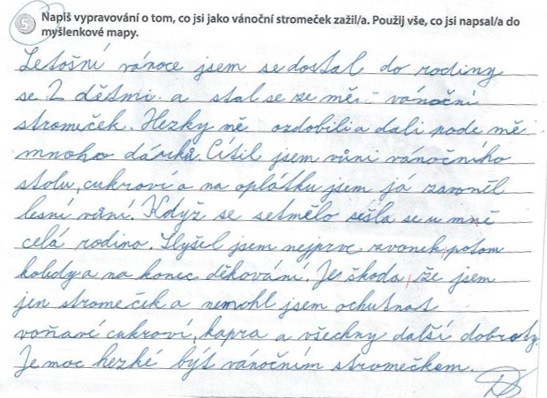 5 Napiš vypravování o tom, co jsi jako vánoční stromeček zažil/a. Použij vše, co jsi napsal/a do
myšlenkové mapy.
Letošní vánoce jsem se dostal do rodiny
se 2 dětmi a stal se ze mě vánoční
stromeček. Hezky mě ozdobili a dali pode mě
mnoho dárků. Cítil jsem vůni vánočního
stolu, cukroví a na oplátku jsem já zavoněl
lesní vůní. Když se setmělo sešla se u mně
celá rodina. Slyšel jsem nejprve zvonek, potom
koledy a na konec děkování. Je škoda, že jsem
jen stromeček a nemohl jsem ochutnat
voňavé cukroví, kapra a všechny další dobroty.
Je moc hezké být vánočním stromečkem.